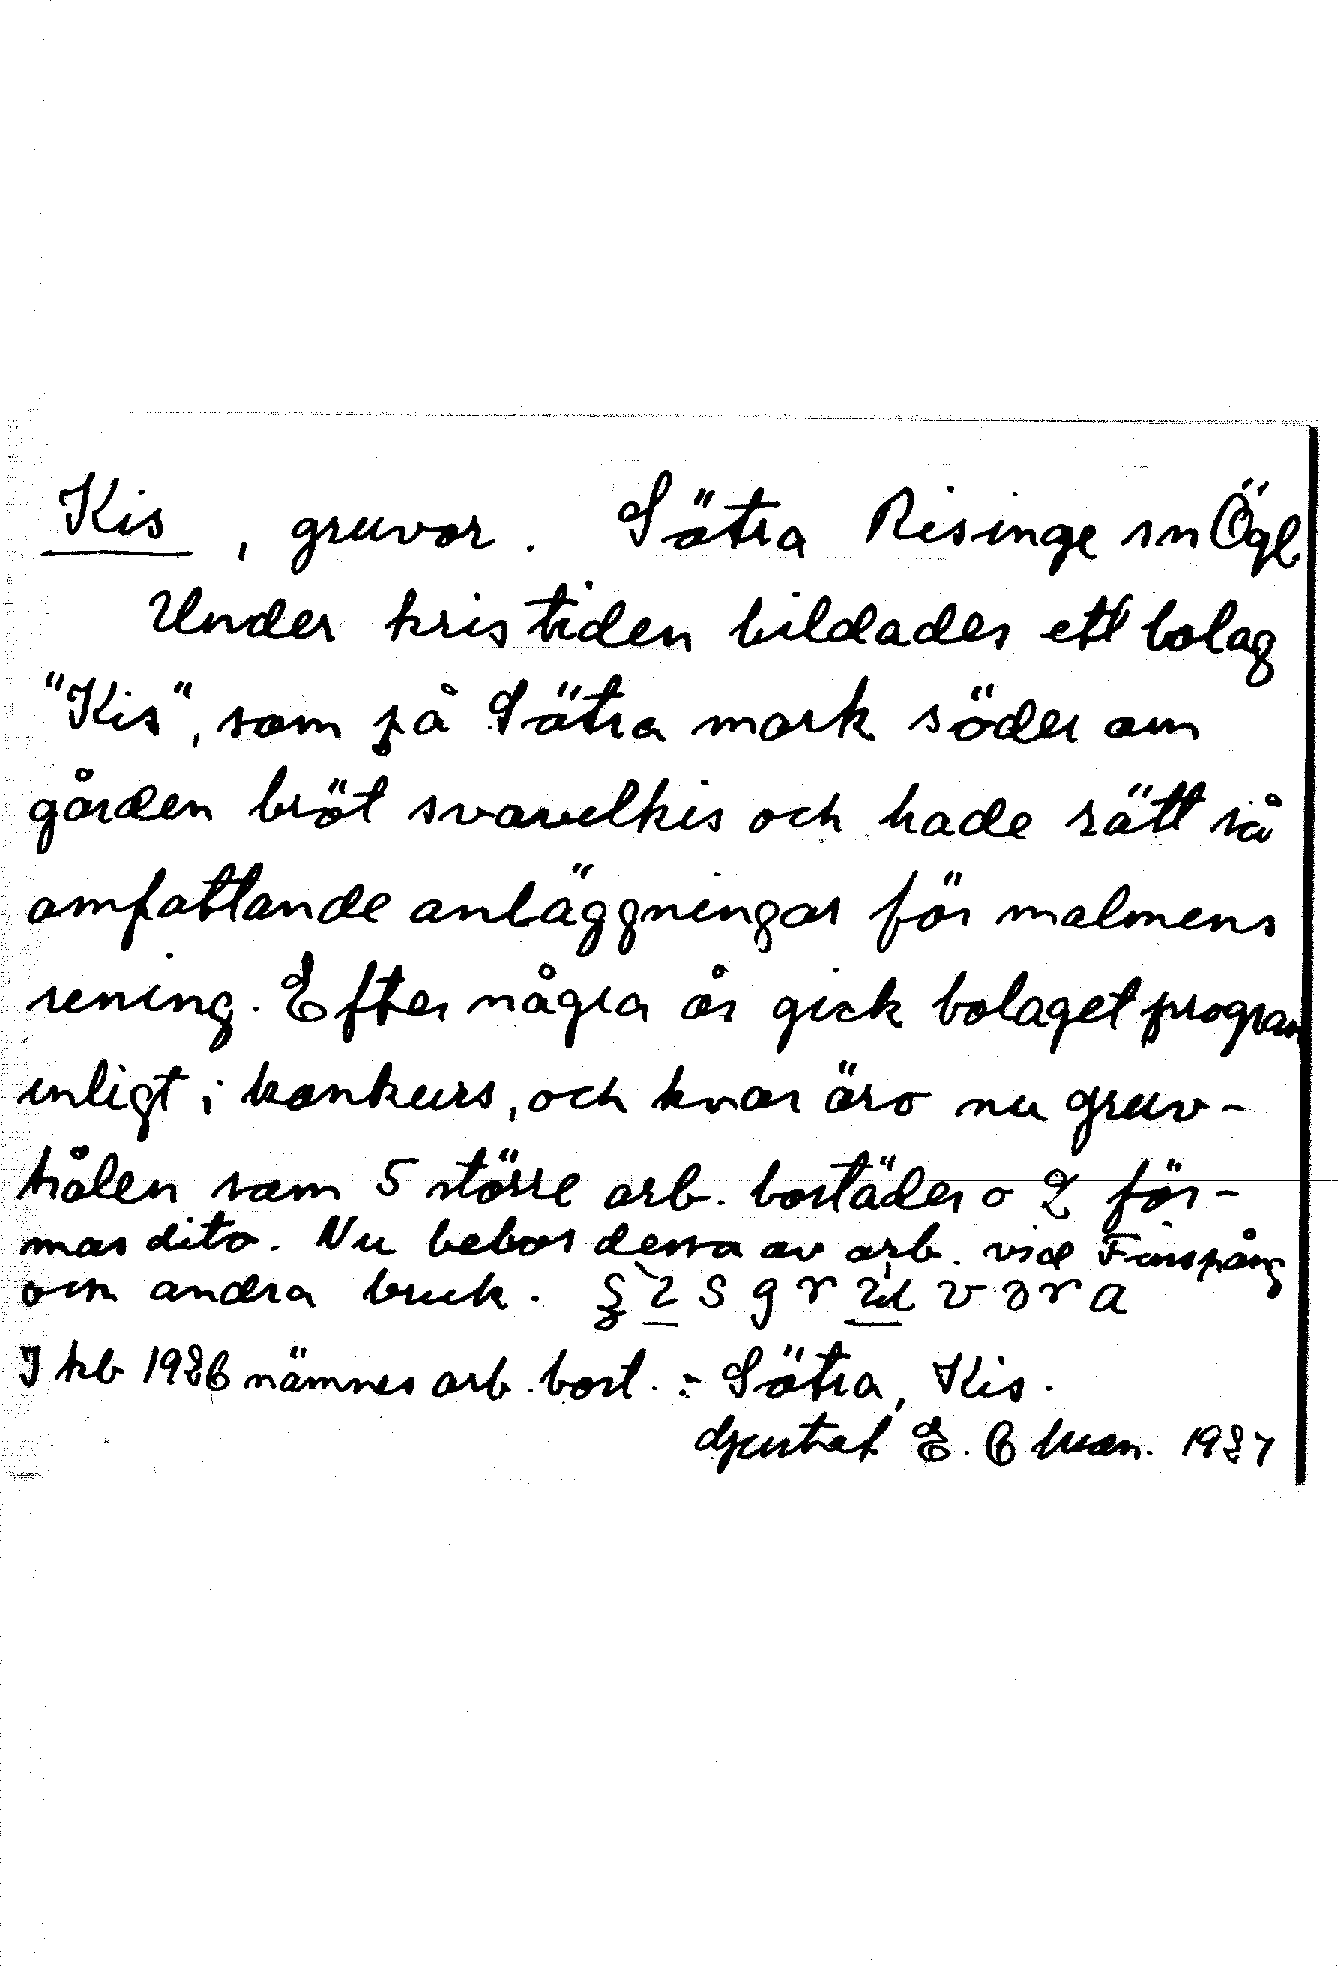 Kis, gruvor. Sätra Risinge sn Ögl
Under kristiden bildades ett bolag
"Kis", som på Sätra mark söder om
gården bröt svavelkis och hade rätt så
omfattande anläggningar för malmens
rening. Efter några år gick bolaget program
enligt i konkurs, och kvar äro nu gruv-
hålen samt 5 större arb. bostäder o 2 för-
mas dito. Nu bebos dessa av arb. vid Finspång
och andra bruk.
I kb 1926 nämnes arb. bost. :- Sätra, Kis.
Gustaf E. 1927